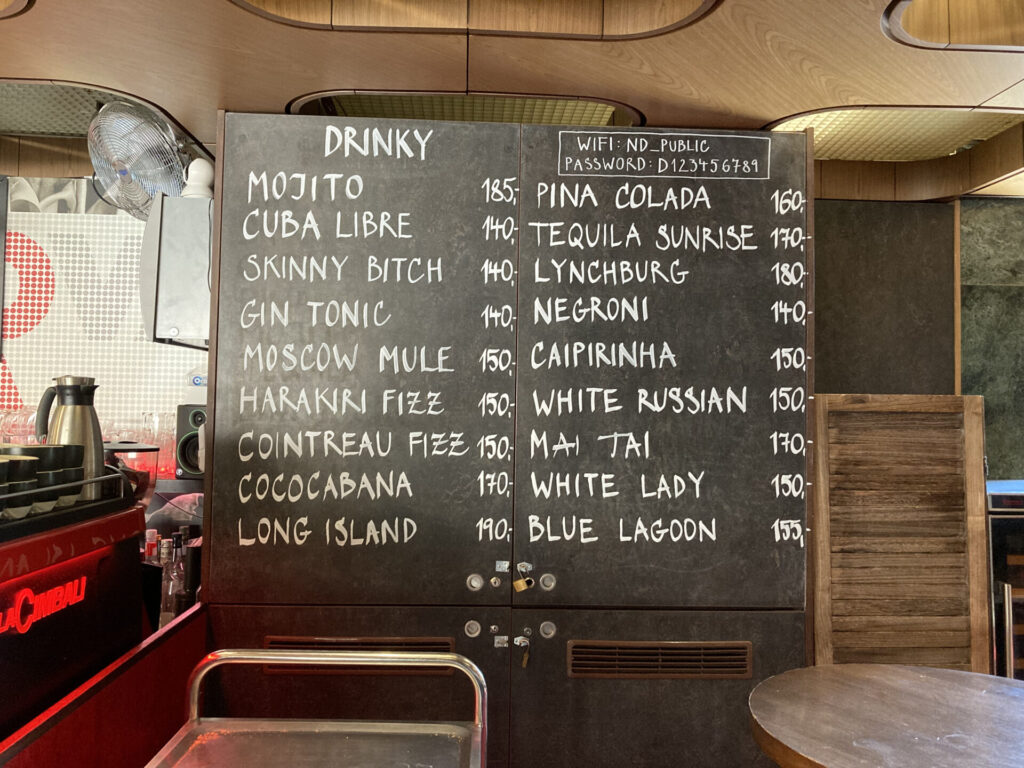 DRINKY
MOJITO 185,-
CUBA LIBRE 140,-
SKINNY BITCH 140,-
GIN TONIC 140,-
MOSCOW MULE 150,-
HARAKIRI FIZZ 150,-
COINTREAU FIZZ 150,-
COCOCABANA 170,-
LONG ISLAND 190,-
WIFI: ND_PUBLIC
PASSWORD: D123456789
PINA COLADA 160,-
TEQUILA SUNRISE 170,-
LYNCHBURG 180,-
NEGRONI 140,-
CAIPIRINHA 150,-
WHITE RUSSIAN 150,-
MAI TAI 170,-
WHITE LADY 150,-
BLUE LAGOON 155,-
LACIMBALI